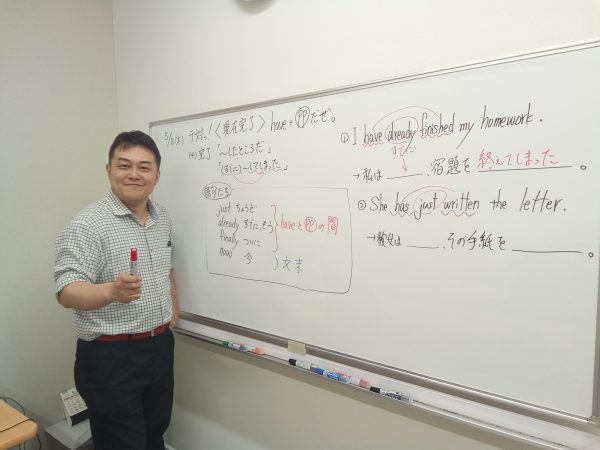 5/8(水) テ対っ!〈現在完了〉have + PP だぜ。
(4) 完了「〜したところだ」
「(すでに)〜してしまった」
just ちょうど
already すでに、もう
finally ついに
now 今
haveとPPの間
文末
① I have already finished my homework.
すでに
→私は 、宿題を 終えてしまった 。
② She has just written the letter.
→彼女は 、その手紙を 。